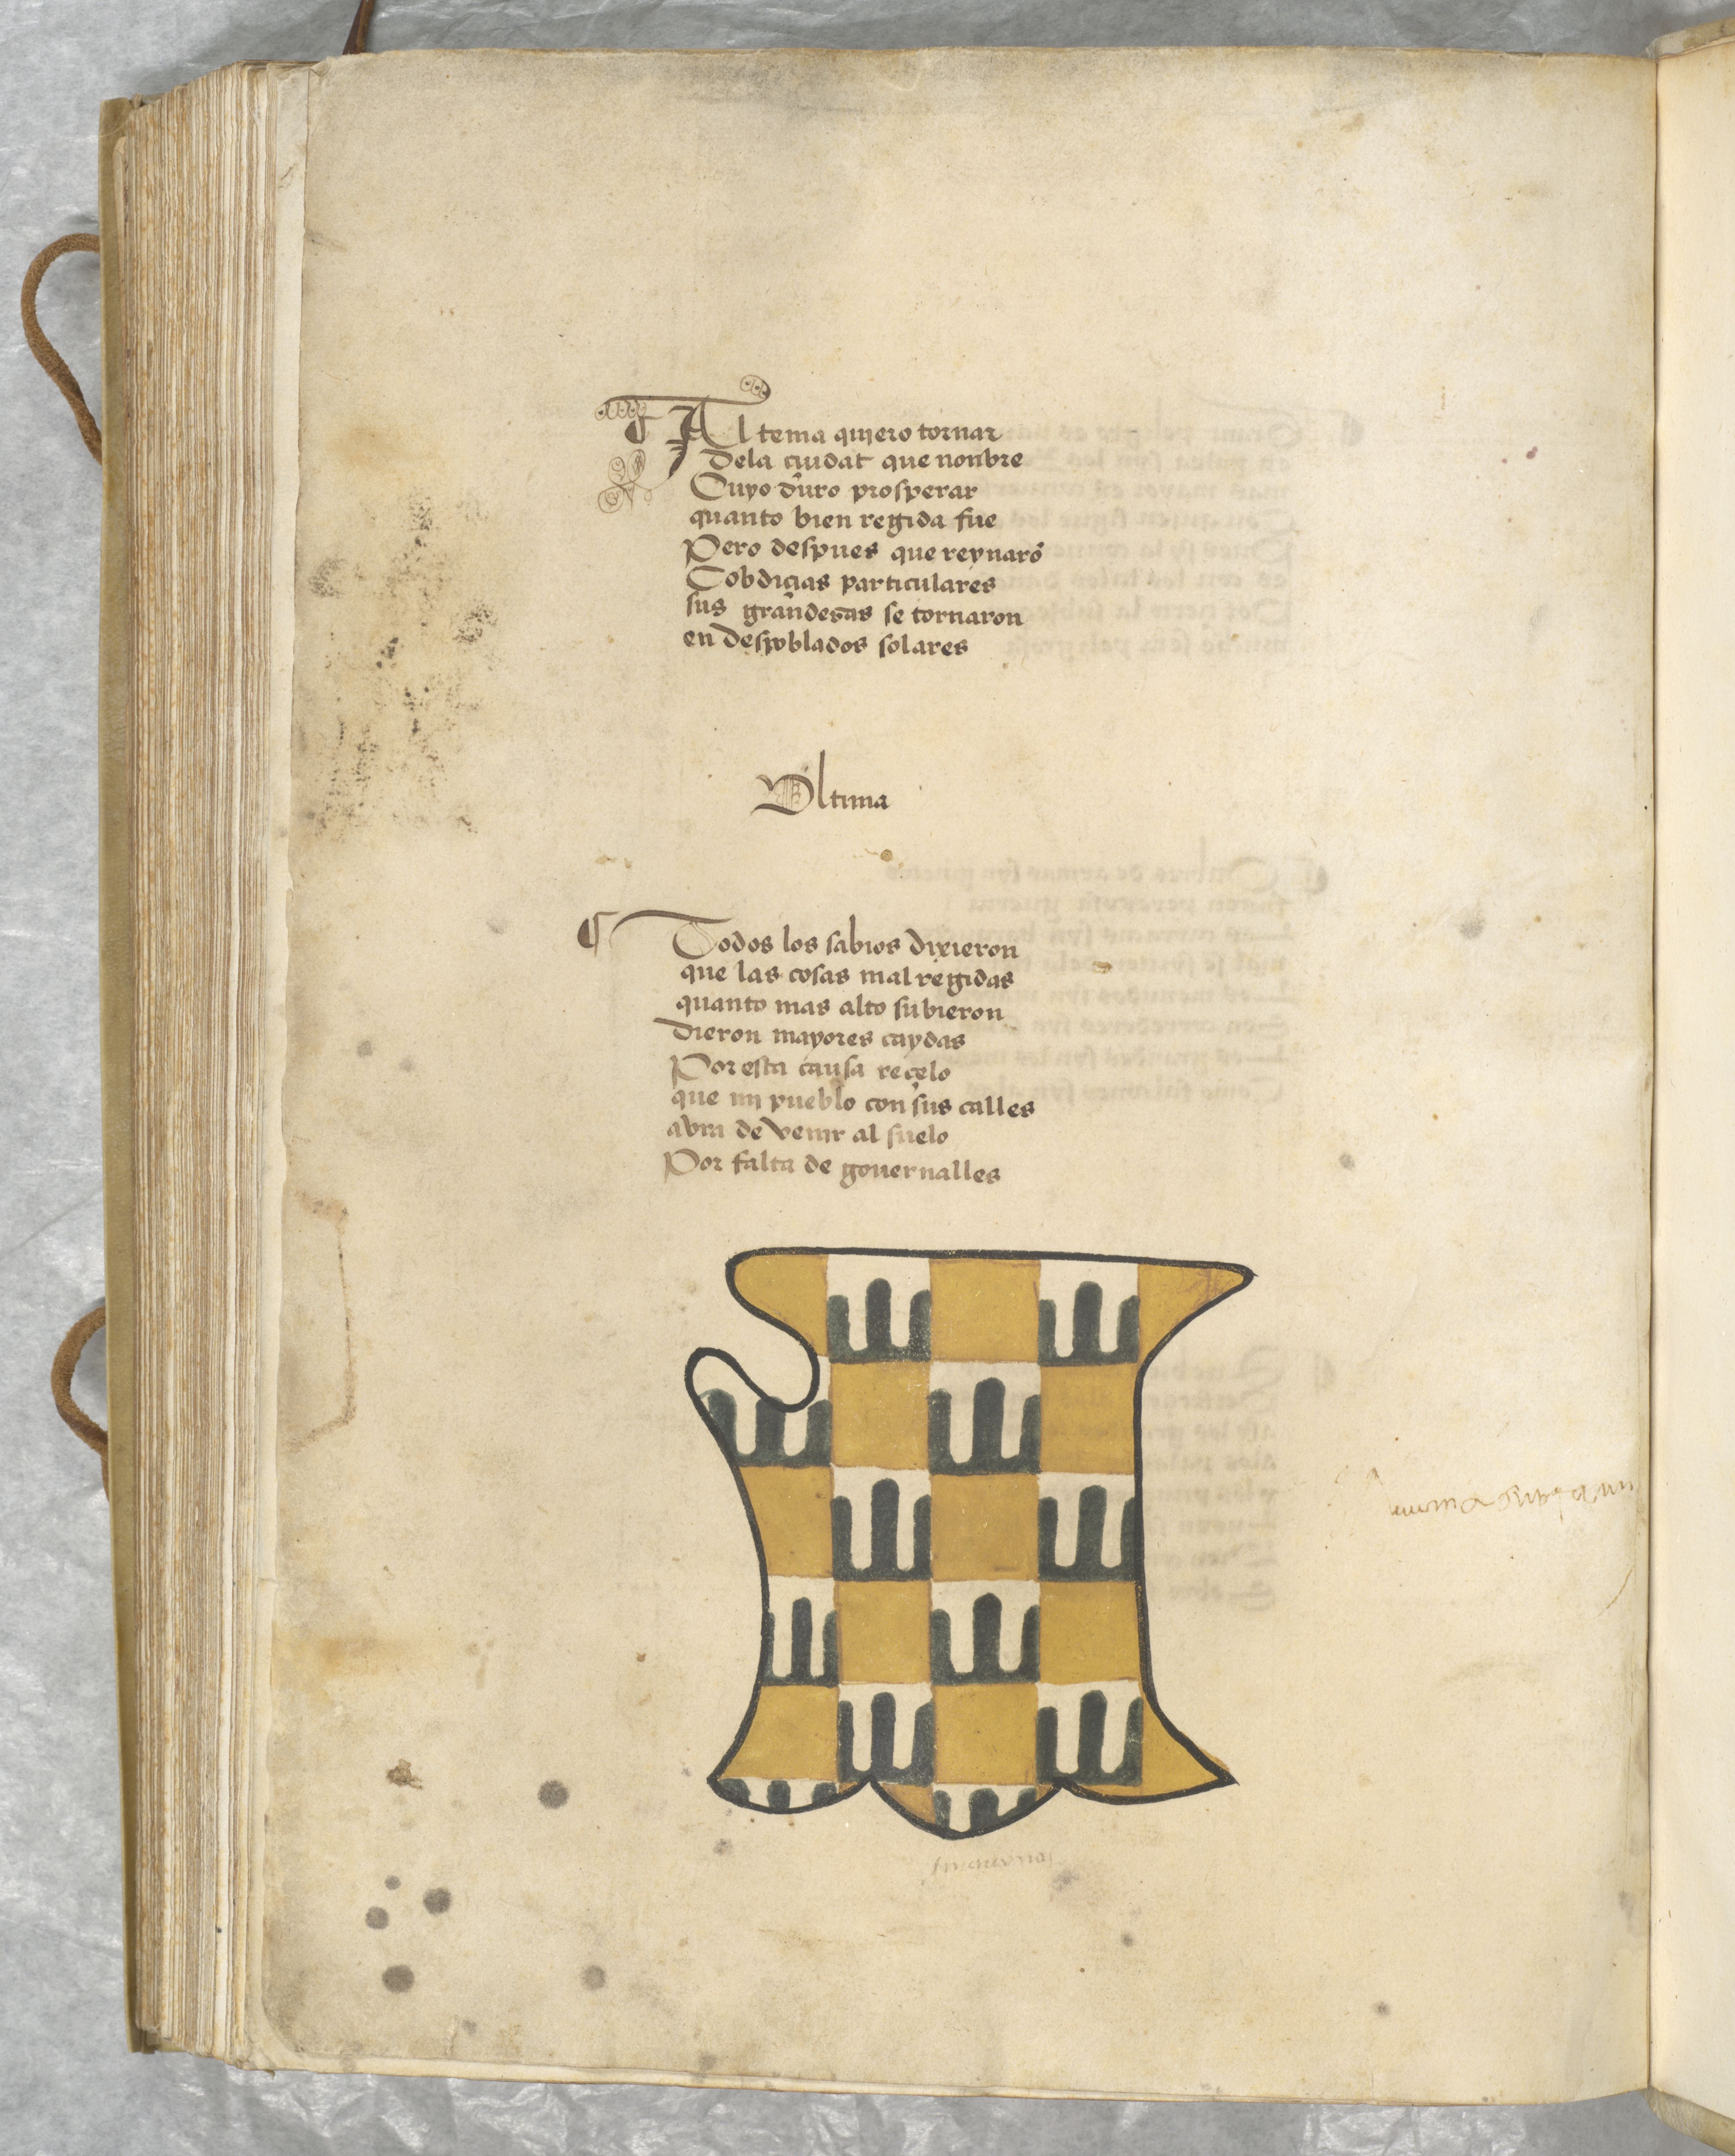 ¶ Al tema quiero tornar
dela ciudat que nonbre
Cuyo duro prosperar
quanto bien regida fue
Pero despues que reynarõ
Cobdiçias particulares
sus grandezas se tornaron
en despoblados solares
Vltima
¶ Todos los sabios dixieron
que las cosas mal regidas
quanto mas alto subieron
dieron mayores caydas
Por esta causa reçelo
que mi pueblo con sus calles
abra de venir al suelo
Por falta de gouernalles